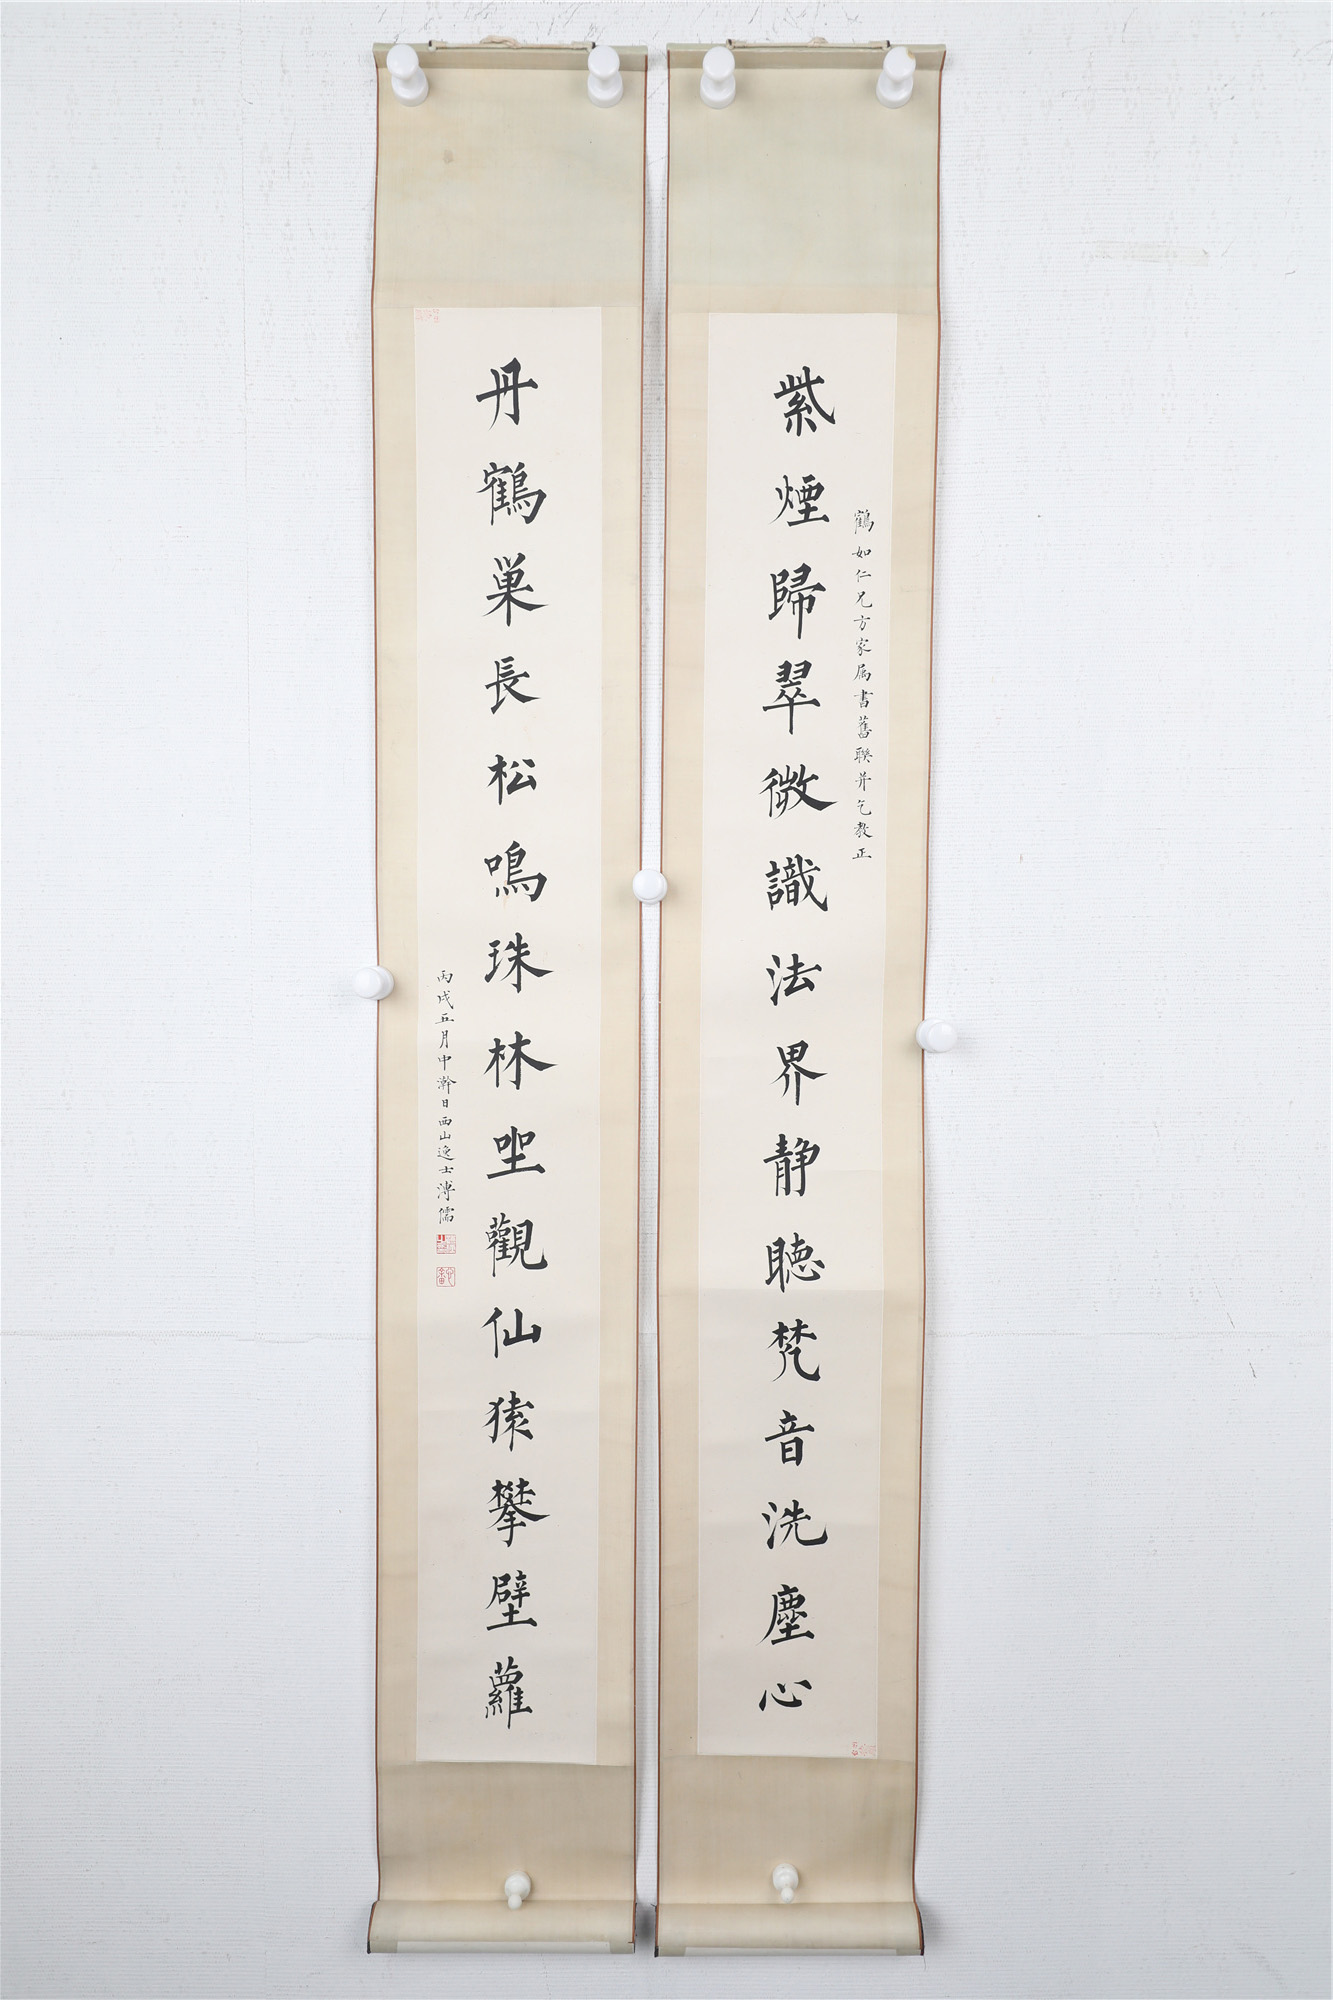 鶴如仁兄方家属書舊聯并乞教正
紫煙歸翠微識法界静聽梵音洗塵心
丹鶴巢長松鳴珠林坐觀仙猿攀壁蘿
丙戌五月中澣日西山逸士溥儒